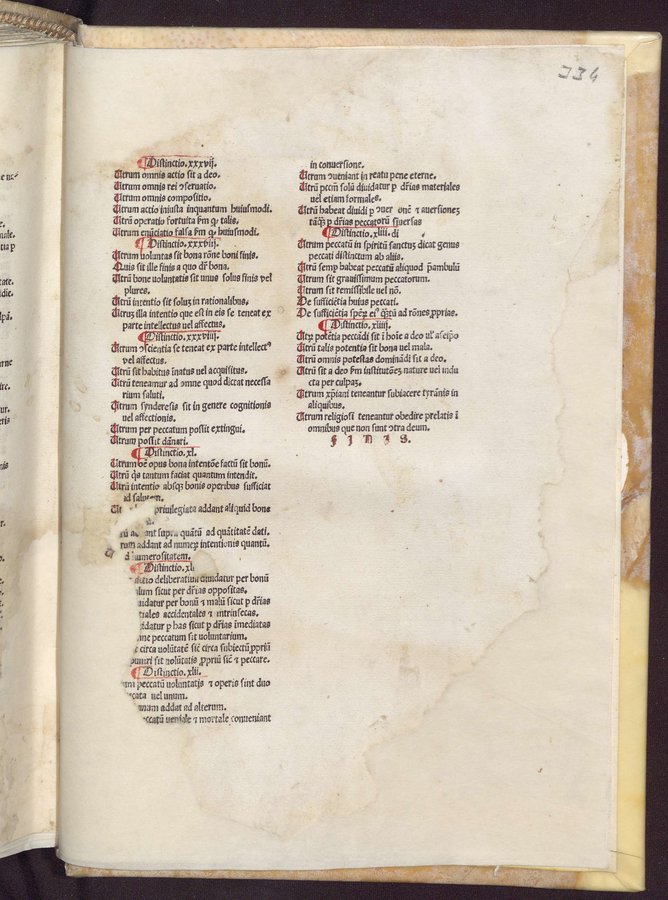 334
Distinctio.xxxvij.
Utrum omnis actio sit a deo.
Utrum omnis rei ꝯseruatio.
Utrum omnis compositio.
Utrum actio iniusta inquantum huiusmodi.
Utrū operatio fortuita ẜm ꝙ talis.
Utrum enūciatio falsa ẜm ꝙ huiusmodi.
Distinctio.xxxviij.
Utrum voluntas sit bona rōne boni finis.
Quis sit ille finis a quo dr̄ bona.
Utrū bone uoluntatis sit unus solus finis vel
plures.
Utrū intentio sit solus in rationalibus.
Utruȝ illa intentio que est in eis se teneat ex
parte intellectus uel affectus.
Distinctio.xxxviiij.
Utrum ꝯscientia se teneat ex parte intellectꝰ
vel affectus.
Utrū sit habitus īnatus uel acquisitus.
Utrū teneamur ad omne quod dictat necessa
rium saluti.
Utrum synderesis sit in genere cognitionis
uel affectionis.
Utrum per peccatum possit extingui.
Utrum possit dānari.
Distinctio.xl.
Utrum oē opus bona intentōe factū sit bonū.
Utrū q̄s tantum faciat quantum intendit.
Utrū intentio absqȝ bonis operibus sufficiat
ad
priuilegiata addant aliquid bone
supra quātū ad quātitatē dati.
addant ad numeꝝ intentionis quantū.
numerositatem.
Distinctio.xli
deliberatiua diuidatur per bonū
sicut per dr̄ias oppositas.
per bonū ⁊ malū sicut ꝑ dr̄ias
accidentales ⁊ intrinsecas.
ꝑ has sicut ꝑ dr̄ias īmediatas
peccatum sit uoluntarium.
circa uolūtatē sic̄ circa subiectū ꝓpriū
puniri sit uolūtatis ꝓpriū sic̄ ⁊ peccare.
Distinctio.xlii.
peccatū uoluntatis ⁊ operis sint duo
uel unum.
addat ad alterum.
ueniale ⁊ mortale conueniant
in conuersione.
Utrum ꝯueniant in reatu pene eterne.
Utrū pctm̄ solū diuidatur ꝑ dr̄ias materiales
uel etiam formales.
Utrū habeat diuidi ꝑ ⁊ auersioneȝ
ꝑ dr̄ias peccatorū
Distinctio.xliii. di
Utrum peccatū in spiritū sanctuȝ dicat genus
peccati distinctum ab aliis.
Utrū semp habeat peccatū aliquod p̄ambulū
Utrum sit grauissimum peccatorum.
Utrum sit remissibile uel nō.
De sufficiētia huius peccati.
De sufficiētia speꝝ eiꝰ ad rōnes ꝓprias.
Distinctio.xliiij.
Utꝝ potētia peccādi sit ī hoīe a deo ul̓ aseip̄o
Utrū talis potentia sit bona uel mala.
Utrū omnis potestas dominādi sit a deo.
Utrū sit a deo ẜm institutōneȝ nature uel indu
cta per culpaȝ.
Utrum xp̄iani teneantur subiacere tyrānis in
aliquibus.
Utrum religiosi teneantur obedire prelatis ī
omnibus que non sunt ꝯtra deum.
FINIS.